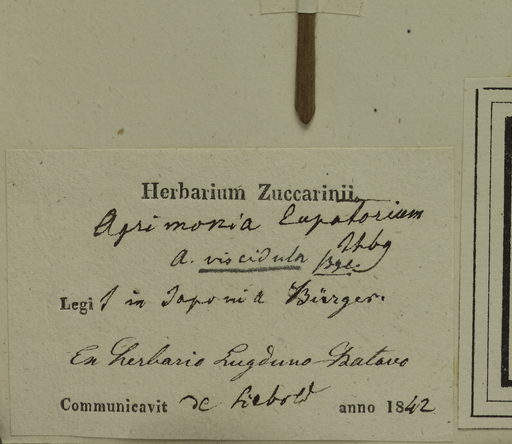 Herbarium Zuccarinii.
Agrimonia Eupatorium
Thbg
A. viscidula Bge.
Legit in Japonia Bürger.
Ex herbario Lugduno-Batavo
Communicavit de Siebold anno 1842